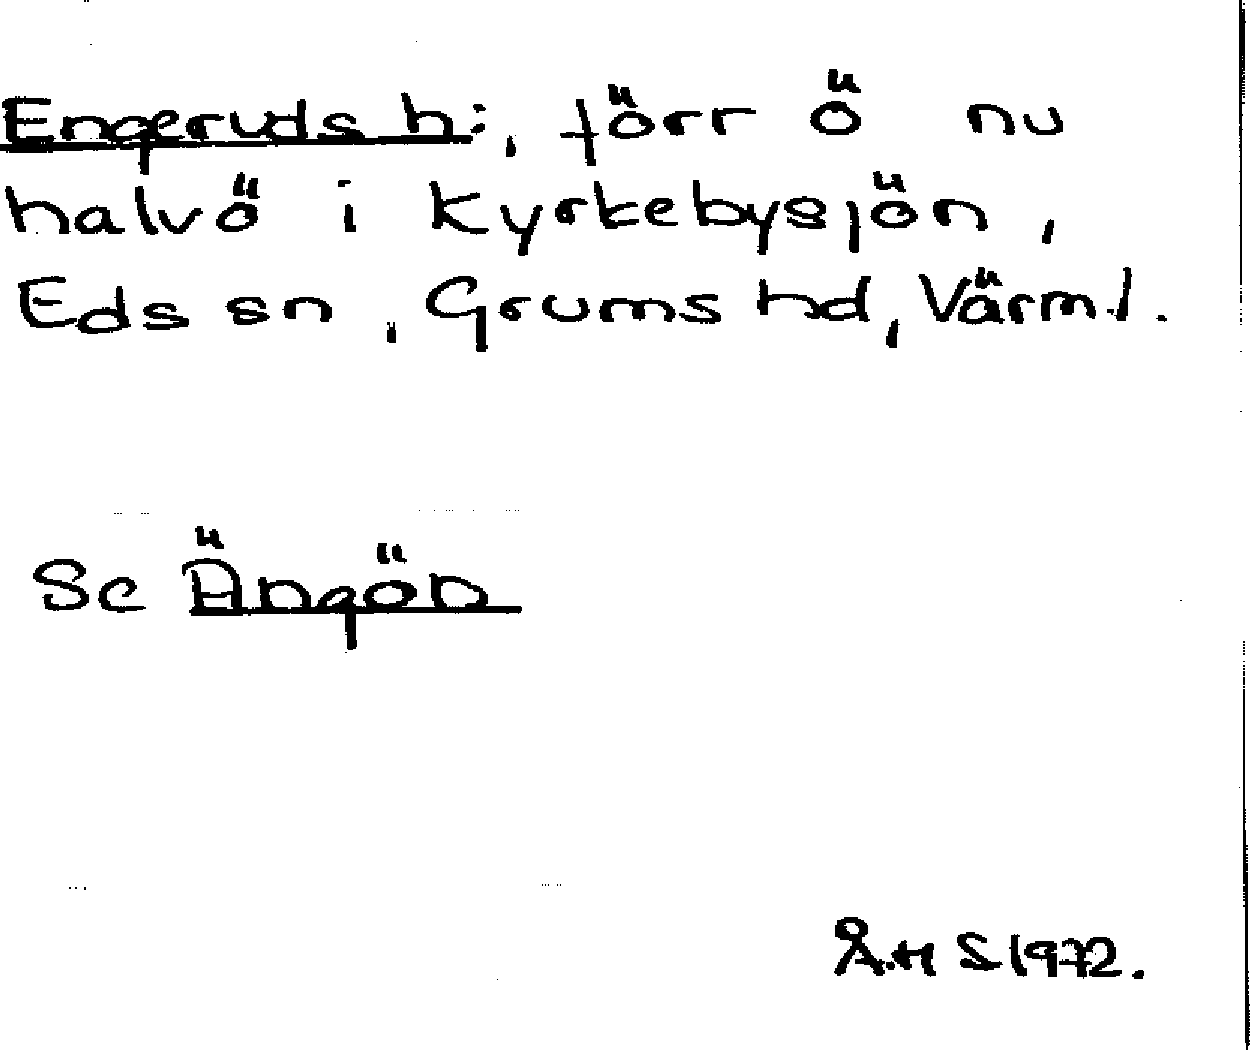 Engeruds h:, förr ö nu
halvö i Kyrkebysjön,
Eds sn, Grums hd, Värml.
Se Ängön
Å.H S 1972.